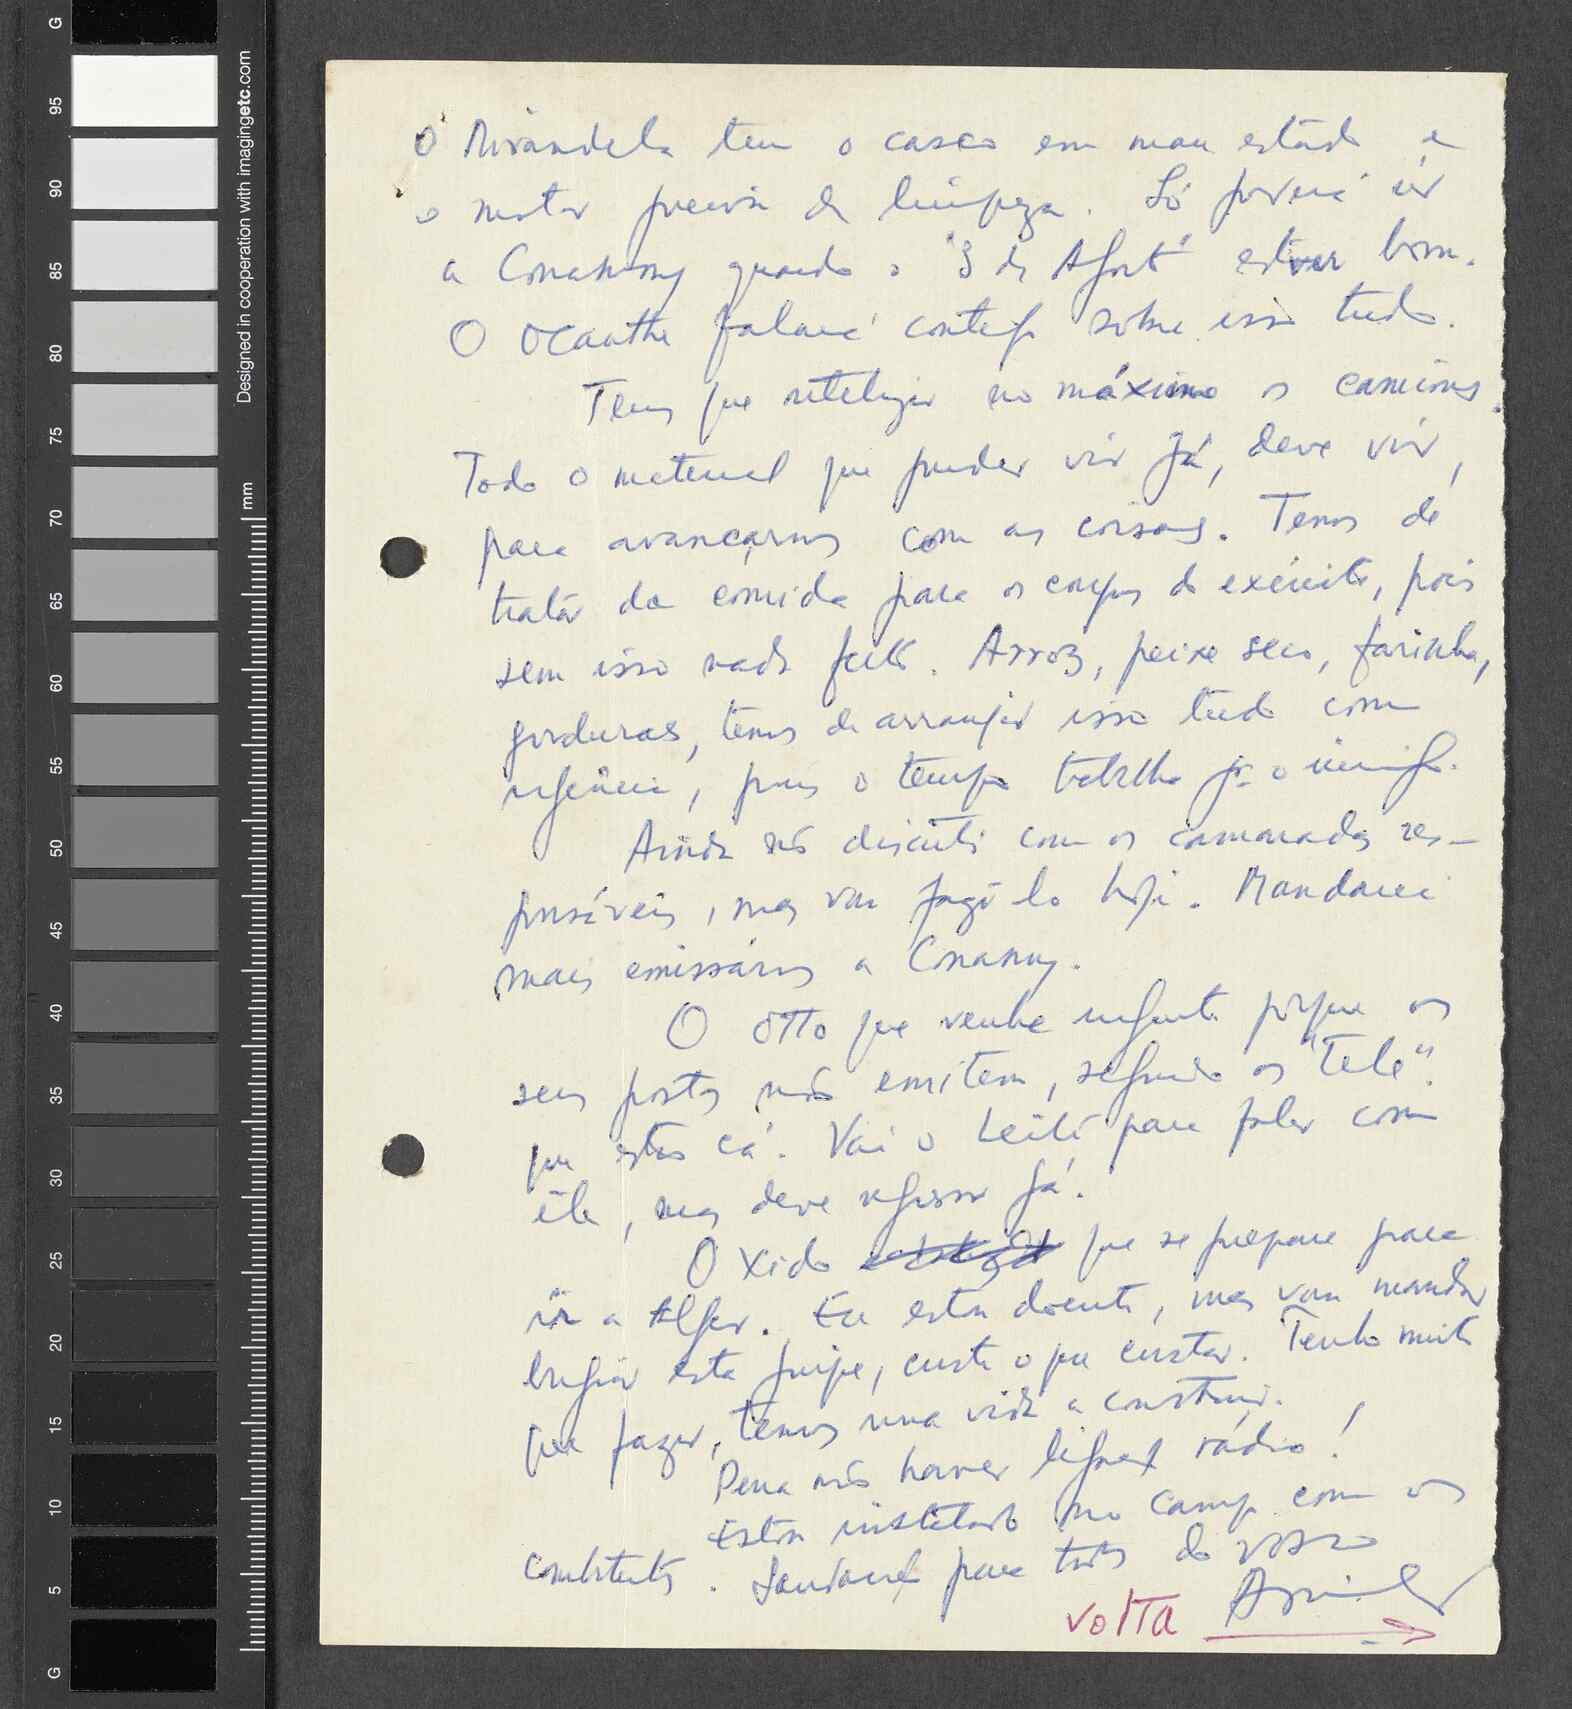 G
95
90
85
80
75
70
65
60
55
50
45
40
35
30
25
20
15
10
5
G
Designed in cooperation with imagingetc.com
mm
O Mirandela tem o casco em mau estado e
o motor precisa de limpeza. Só poderá ir
a Conakry quando o "3 de Agosto" estiver bom.
O Ocanthe falará contigo sobre isso tudo.
Temos que utilizar no máximo os camiões.
Todo o material que puder vir já, deve vir,
para avançarmos com as coisas. Temos de
tratar da comida para os corpos do exército, pois
sem isso nada feito. Arroz, peixe seco, farinha,
gorduras, temos de arranjar isso tudo com
urgência, pois o tempo trabalha p.ª o inimigo.
Ainda não discuti com os camaradas res-
ponsáveis, mas vou fazê-lo hoje. Mandarei
mais emissários a Conakry.
O Otto que venha urgente porque os
seus postos não emitem, segundo os "Tele"
que estão cá. Vai o Leité para falar com
êle, mas deve regressar já.
O Xido que se prepare para
ir a Alger. Eu estou doente, mas vou mandar
bugiar esta gripe, custe o que custar. Tenho muito
que fazer, temos uma vida a construir.
Pena não haver ligação rádio!
Estou instalado no campo com os
combatentes. Saudações para todos do vosso
VOLTA